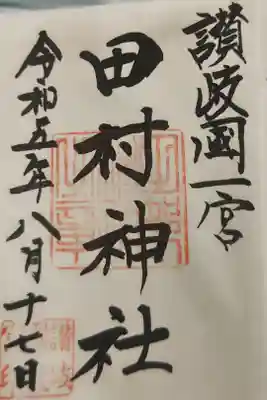 讃岐國一宮
田村神社
令和五年八月十七日